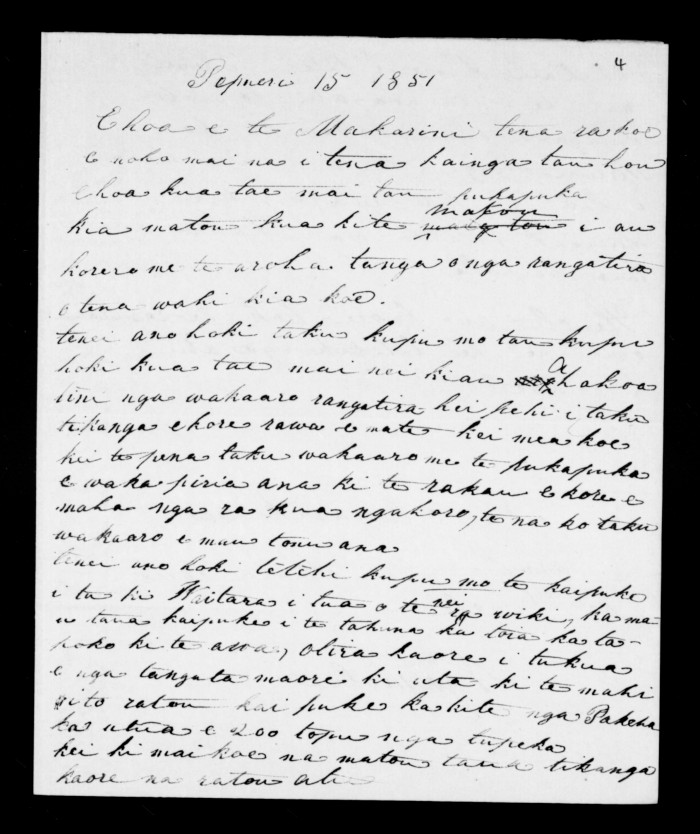 4
Pepueri 15 1851
Ehoa e te Makarini tena ra koe
e noho mai na i tena kainga tau hou
ehoa kua tae mai tau pukapuka
kia matou kua kite matou i au
korero me te aroha. tanga o nga rangatira
o tena wahi kia koe.
tenei ano hoki taku kupu mo tau kupu
hoki kua tae mai nei kiau Ahakoa
tini nga wakaaro rangatira hei pehi i taku
tikanga ekore rawa e mate kei mea koe
kei te pena taku wakaaro me te pukapuka
e waka piria ana ki te rakau e kore e
maha nga ra kua ngahoro, te na ko taku
wakaaro e mau tonu ana
tenei ano hoki tetehi kupu mo te kaipuke
i tu ki Waitara i tua o te nei wiki, ka ma-
u taua kaipuke i te tahuna ka toia ka ta-
poko ki te awa, otira kaore i tukua
e nga tangata maori ki uta ki te mahi
i to ratou kai puke ka kite nga Pakeha
ka utua e 200 topu nga tupeka
kei ki mai koe na matou taua tikanga
kaore na ratou ake